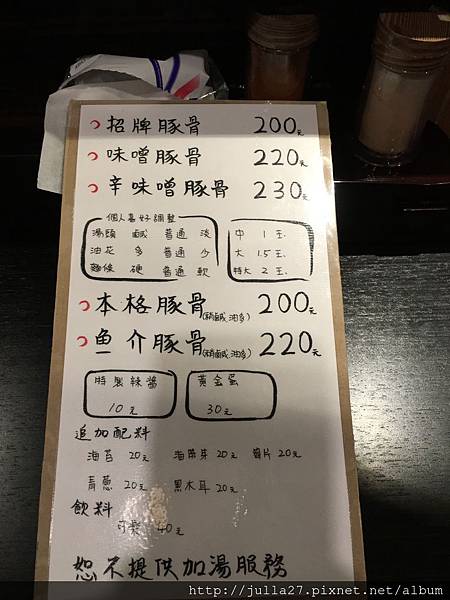 招牌豚骨 200元
味噌豚骨 220元
辛味噌豚骨 230元
個人喜好調整
湯頭 鹹 普通 淡
油花 多 普通 少
麵條 硬 普通 軟
中 1玉.
大 1.5玉.
特大 2玉.
本格豚骨(稍鹹.油多) 200元
魚介豚骨(稍鹹.油多) 220元
特製辣醬
10元
黃金蛋
30元
追加配料
海苔 20元 海帶芽 20元 筍片 20元
青蔥 20元 黑木耳 20元
飲料
可樂 40元
恕不提供加湯服務
http://julla27.pixnet.net/album